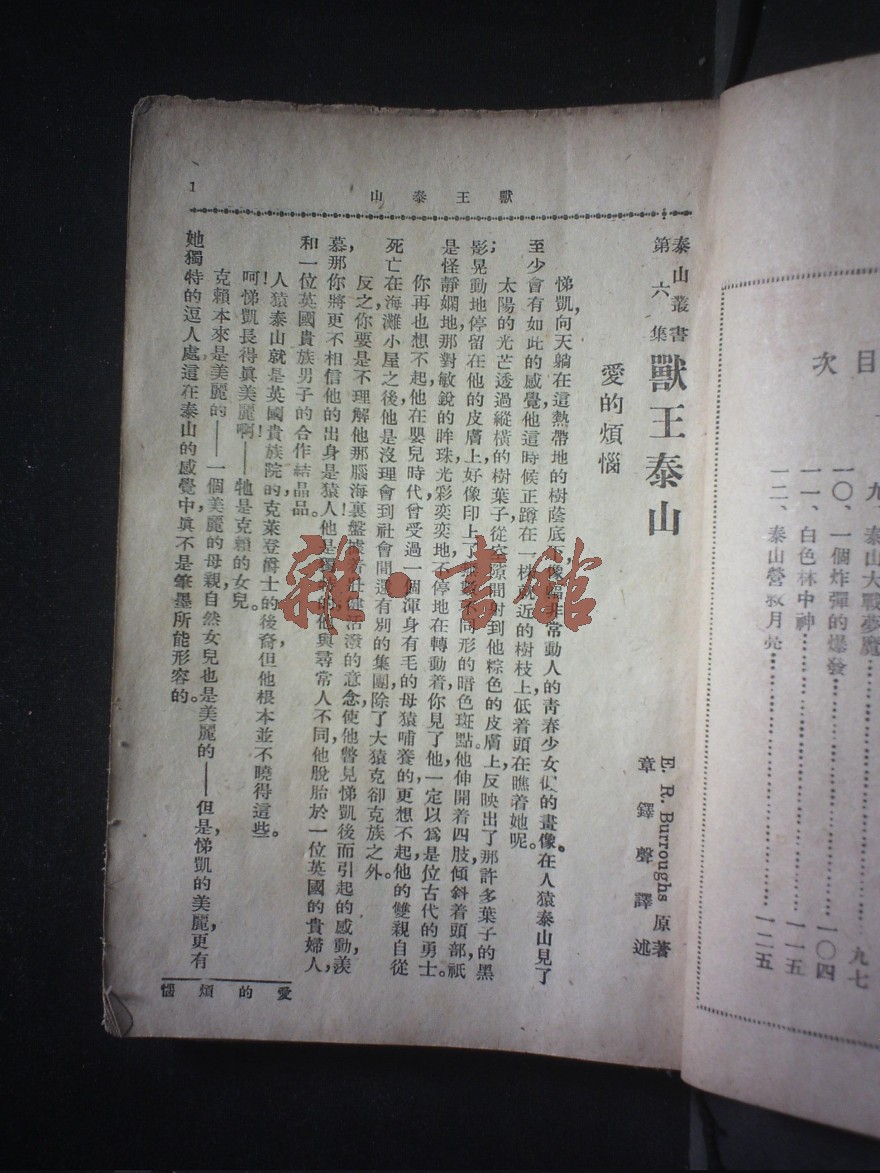 目次
九、泰山大戰夢魔……九七
一〇、一個炸彈的爆發……一〇四
一一、白色林中神……一一五
一二、泰山營救月亮……一二五
獸王泰山
1
泰山叢書
第六集
獸王泰山
E. R. Burroughs 原著
章鐸聲譯述
愛的煩惱
悌凱向天躺在這熱帶地的樹蔭底下,像幅非常動人的青春少女似的畫像。在人猿泰山見了
至少會有如此的感覺,他這時候正蹲在一株就近的樹枝上,低着頭在瞧着她呢。
太陽的光芒透過縱橫的樹葉子,從空隙間射到他粽色的皮膚上,反映出了那許多葉子的黑
影;晃動地停留在他的皮膚上,好像印上了無數不同形的暗色斑點。他伸開着四肢,傾斜着頭部,祇
是怪靜嫻地那對敏銳的眸珠光彩奕奕地不停地在轉動着你見了他,一定以爲是位古代的勇士。
你再也想不起,他在嬰兒時代曾受過一個渾身有毛的母猿哺養的,更想不起他的雙親自從
死亡在海灘小屋之後,他是沒理會到社會間還有別的集團,除了大猿克卻克族之外。
反之,你要是不理解他那腦海裏盤據着壯健活潑的意念,使他瞥見悌凱後而引起的感動,羨
慕,那你將更不相信他的出身是猿人!他是 的,他與尋常人不同,他脫胎於一位英國的貴婦人,
和一位英國貴族男子的合作結晶品。
人猿泰山就是英國貴族院的克萊登爵士的後裔,但他根本並不曉得這些。
呵!悌凱長得眞美麗啊!——牠是克賴的女兒。
克賴本來是美麗的——一個美麗的母親,自然女兒也是美麗的——但是,悌凱的美麗,更有
她獨特的逗人處,這在泰山的感覺中,眞不是筆墨所能形容的。
愛的煩惱
雜·書館